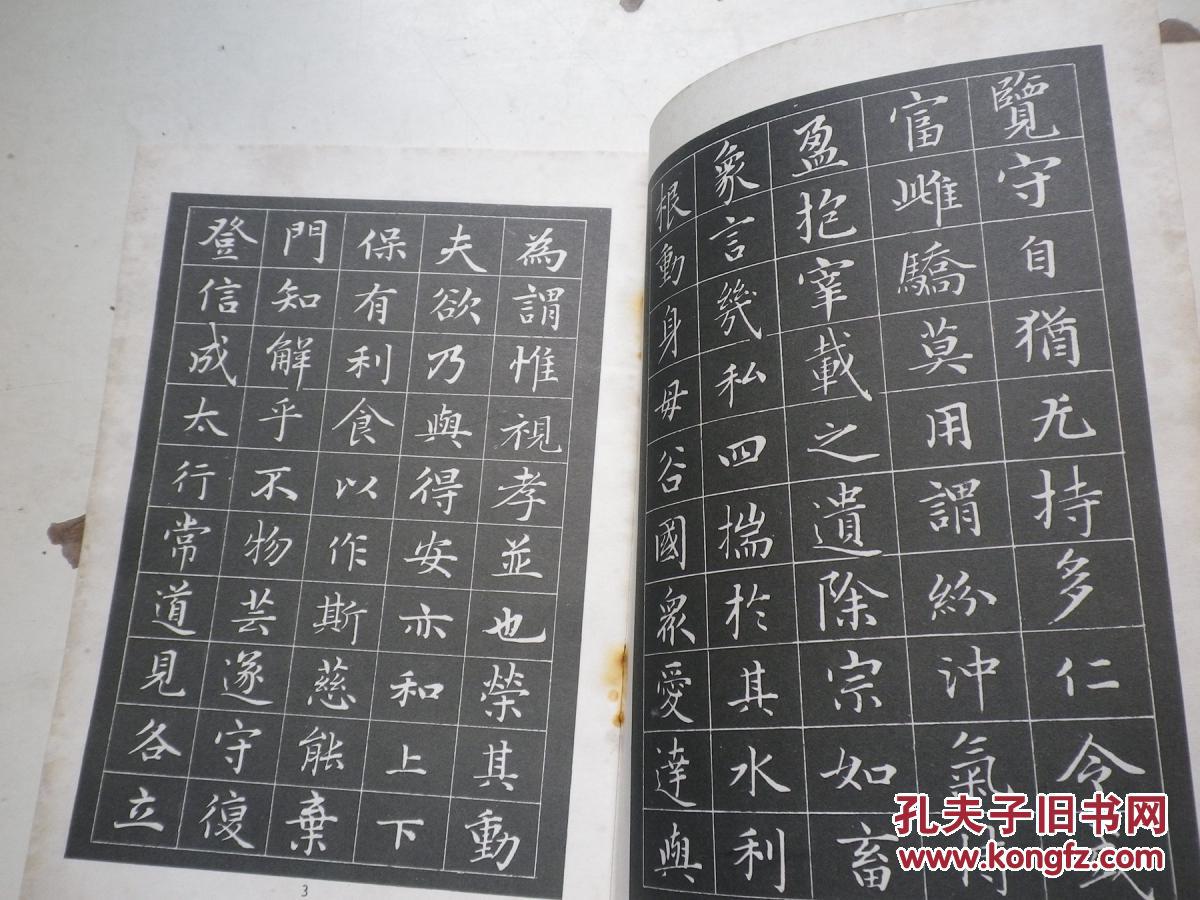 覽守自猶无持多仁令或
富雌驕莫用謂紛沖氣
盈抱宰載之遺除宗如畜
象言幾私四揣於其水利
根動身毋谷國眾愛達與
為謂惟視孝並也榮其動
夫欲乃與得安亦和上下
保有利食以作斯慈能棄
門知解乎不物芸遂守復
登信成太行常道見各立
3
孔夫子旧书网
www.kongfz.com